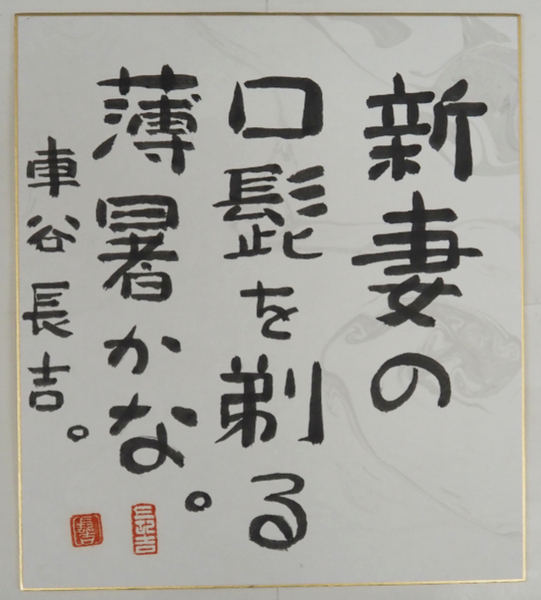 新妻の
口髭を剃る
薄暑かな。
車谷長吉。
長吉